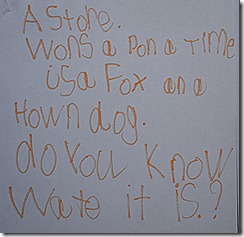 A Store.
Wons a pon a time
is a Fox an a
Hown dog.
do you know
Wate it is.?